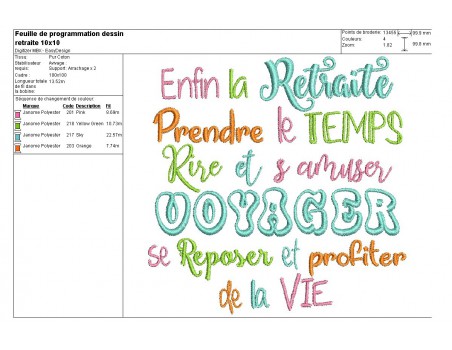 Feuille de programmation dessin
retraite 10x10
Digitizer MBX - EasyDesign
Points de broderie: 13456
Couleurs: 4
Zoom: 1.02
99.8 mm
99.8 mm
Tissu: Pur Coton
Autres Aiwaga
requis: Support: Arrachage x 2
Cadre: 100x100
Longueur totale 13.52m
de fil dans
la bobine:
Séquence de changement de couleur:
Marque Code Description Fil
Janome Polyester 201 Pink 8.69m
Janome Polyester 218 Yellow Green 10.73m
Janome Polyester 217 Sky 22.57m
Janome Polyester 203 Orange 7.74m
Enfin la Retraite
Prendre le TEMPS
Rire et s'amuser
VOYAGER
se Reposer et profiter
de la VIE